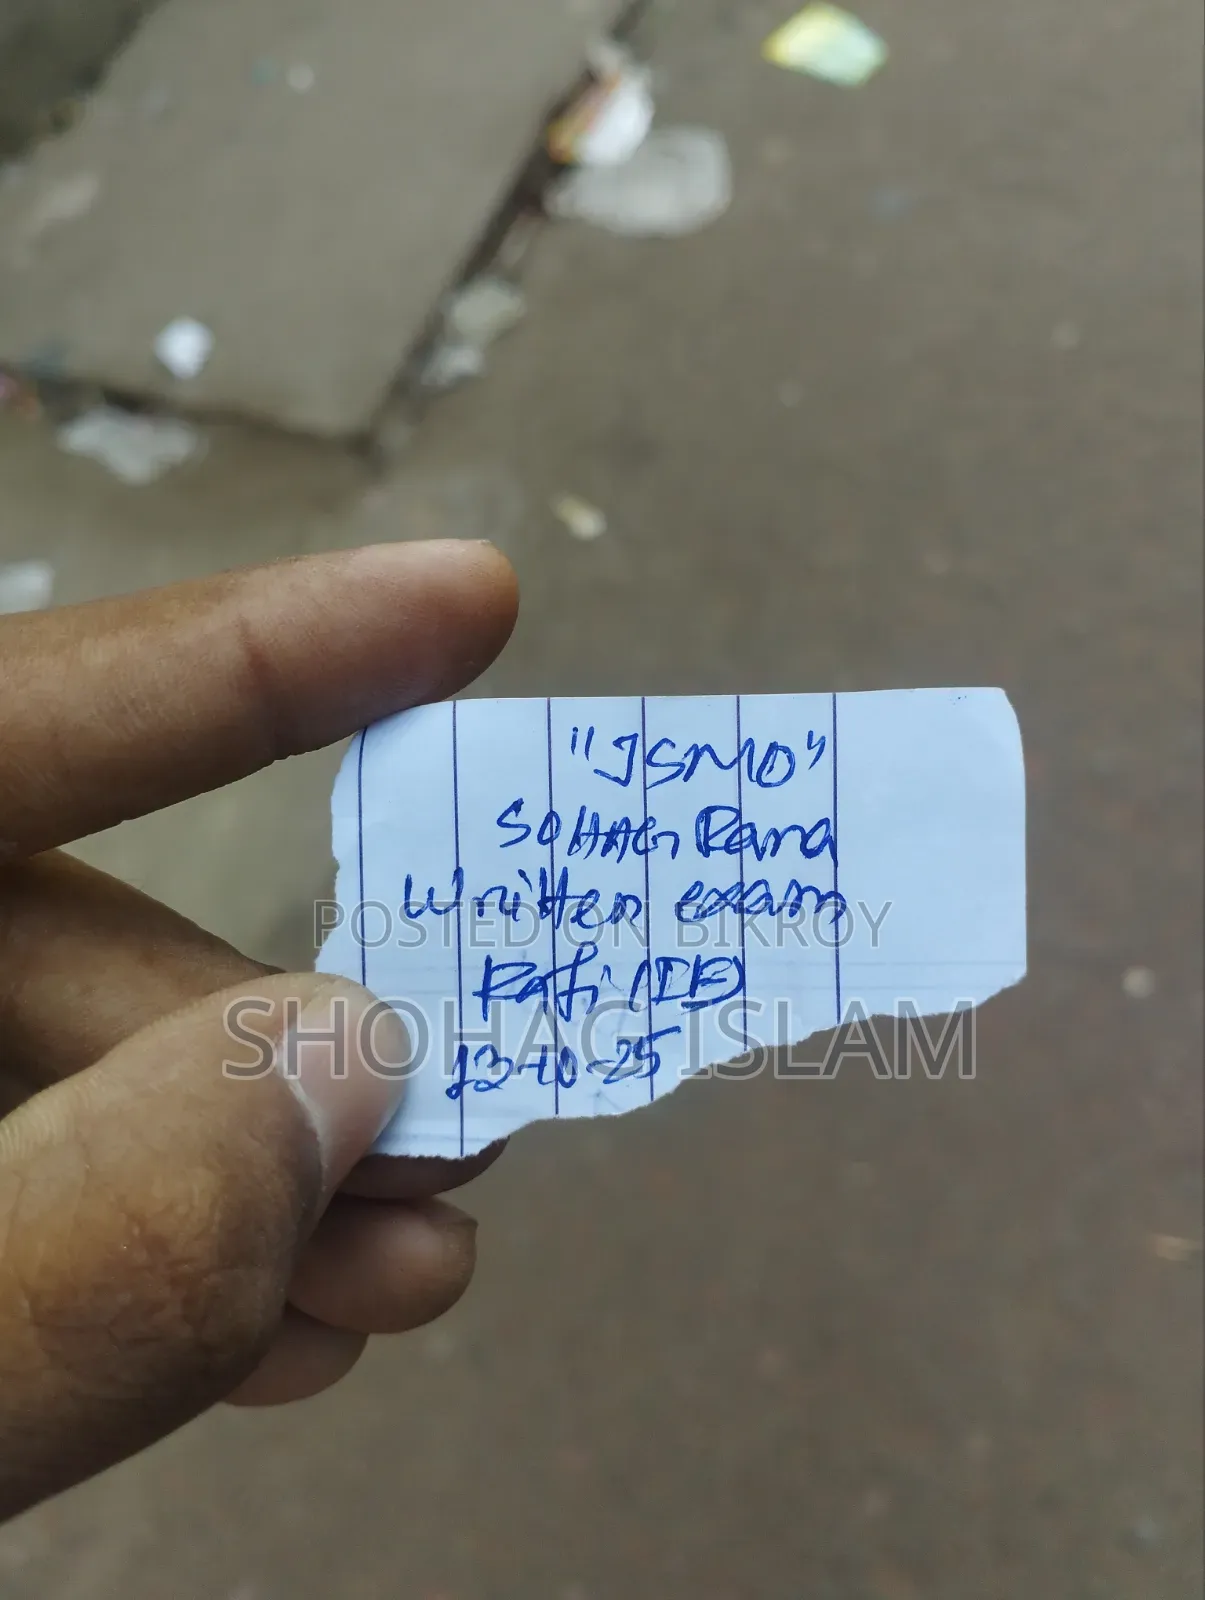 "JSMO"
SOHAG Rana
Written exam
POSTED ON BIKROY
Rafi (IB)
SHOHAG ISLAM
12-10-25